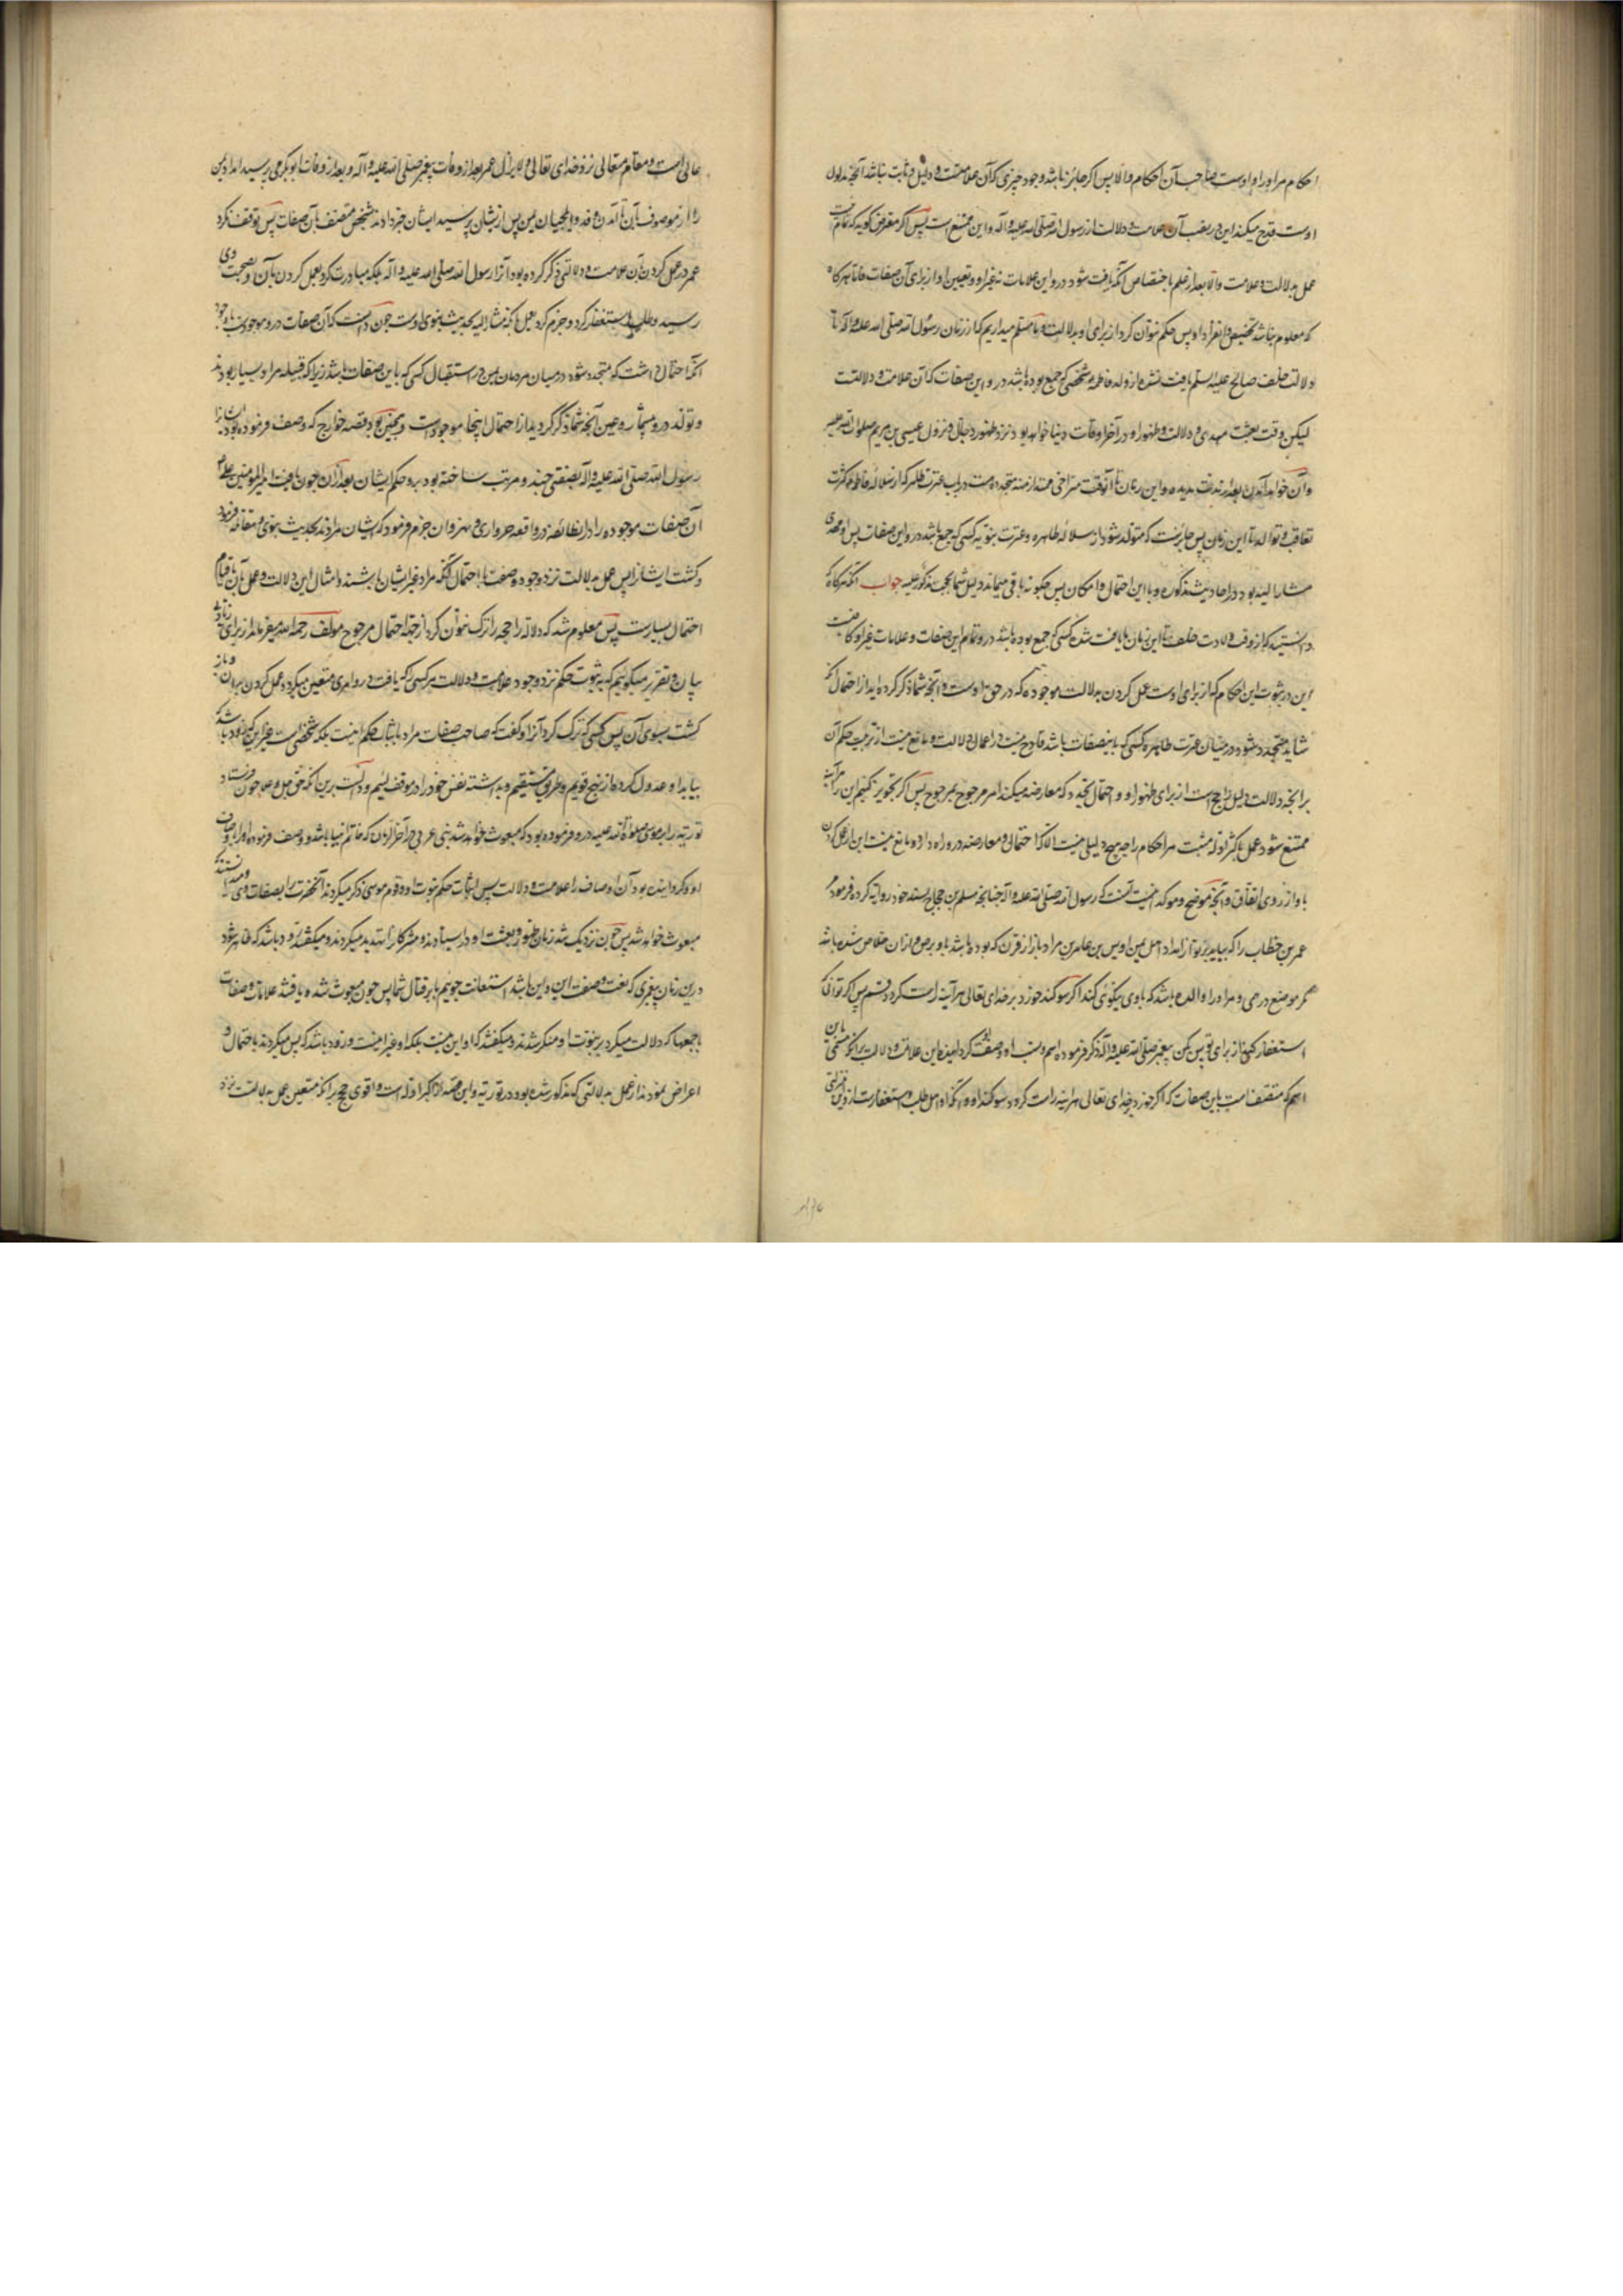 احکام مر او را و اوست صاحب آن احکام والا پس اکر جائز نباشد وجود چیزی که آن علامتست و دلیل و ثابت نباشد آنچه مدلول
اوست قدح میکند این در نصب آن علامت و دلالت از رسول الله صلی الله علیه و آله و این ممتنع است پس اکر معترض کوید که تمام نیست
عمل بدلالت و علامت والا بعد از علم باختصاص آنکه یافت شود درو این علامات نه غیر او و تعیین او از برای آن صفات فاما هرکاه
که معلوم نباشد تخصیص و انفراد او پس حکم نتوان کرد از برای او بدلالت و ما مسلم میداریم که از زمان رسول الله صلی الله علیه و آله تا
ولادت خلف صالح علیه السلم یافت نشد از ولد فاطمه شخصی که جمع بوده باشد درو این صفات که آن علامت و دلالتست
لیکن وقت بعثت مهدی و دلالت و ظهور او در آخر اوقات دنیا خواهد بود نزد ظهور دجال و نزول عیسی بن مریم صلوات الله علیه
و آن خواهد آمدن بعد از مدت مدیده و این زمان تا آنوقت متراخی ممتد ازمنه متجدده است و عترت طاهره که از سلاله فاطمه کثرت
تعاقب و توالد تا این زمان پس جایزست که متولد شود از سلاله طاهره و عترت نبویه کسی که جمع باشد درو این صفات پس او مهدی
مشار الیه بود در احادیث مذکوره و با این احتمال و امکان پس چکونه باقی میماند دلیل شما بحجت مذکور علیه جواب آنکه هرکاه که
دانستید که از وقت ولادت خلف تا این زمان یافت نشده کسی که جمع بوده باشد درو تمام این صفات و علامات غیر او کافیست
این در ثبوت این احکام که از برای اوست عمل کردن بدلالت موجوده که در حق اوست و آنچه شما ذکر کرده اید از احتمال آنکه
شاید متجدد شود در میان عترت طاهره کسی که باینصفات باشد قادح نیست در اعمال دلالت و مانع نیست از ترتیب حکم آن
برانچه دلالت دلیل راجح است از برای ظهور او و احتمال تجدد که معارضه میکند امر مرجوح پس اکر تجویز کنیم این را هرآینه
ممتنع شود عمل باکثر ادله مثبت مر احکام را چه هیچ دلیلی نیست الا که احتمالی و معارضه درو راه دارد و مانع نیست این از عمل کردن
باو از روی اتفاق و آنچه موضح و موکد اینست آنست که رسول الله صلی الله علیه و آله چنانچه مسلم بن حجاج بسند خود روایة کرده فرمود مر
عمر بن خطاب را که بیاید بر تو از امداد اهل یمن اویس بن عامر بن مراد باز از قرن که بوده باشد باو برص و از ان خلاص شده باشد
مکر موضع درهمی و مر او را والده باشد که باوی نیکوئی کند اکر سوکند خورد بر خدای تعالی هرآینه راست کرد قسم پس اکر توانی که
استغفار کنی از برای تو پس بکن پیغمبر صلی الله علیه و آله ذکر فرموده اسم و نسب او و صفت او کردانیده این علامت و دلالت برانکه مسمی باین
اسم که متصف است باین صفات که اکر خورد بخدای تعالی هراینه راست کردد سوکند او و آنکه او اهل طلب استغفارست ازو این منزلتی
عالی است و مقام متعالی نزد خدای تعالی و لا یزال عمر بعد از وفات پیغمبر صلی الله علیه و آله و بعد از وفات ابو بکر می پرسید امداد یمن
را از موصوف باین تا آمدن وفد و ایلچیان یمن پس از یشان پرسید ایشان خبر دادند شخص متصف بآن صفات پس توقف نکرد
عمر در عمل کردن بآن علامت و دلالتی که ذکر کرده بود آنرا رسول الله صلی الله علیه و اله بلکه مبادرت کرد بعمل کردن بآن و بصحبت وی
رسید و طلب استغفار کرد و جزم کرد بعمل بانکه مشار الیه بحدیث نبوی اوست چون دانست که آن صفات درو موجودست باوجود
آنکه احتمال داشت که متجدد شود در میان مردمان یمن در استقبال کسی که باین صفات باشد زیرا که قبیله مراد بسیار بودند
و تولد درو بیشمار و عین آنچه شما ذکر کردید از احتمال اینجا موجودست و همچنین بود قصه خوارج که وصف فرموده بود ایشانرا
رسول الله صلی الله علیه و اله بصفتی چند و مرتب ساخته بود برو حکم ایشان بعد از آن چون یافت امیر المومنین علم
آن صفات موجوده را در انطائفه در واقعه حروارا و نهروان جزم فرمود که ایشان مرادند بحدیث نبوی و مقاتله فرمود
و کشت ایشانرا پس عمل بدلالت نزد وجود صفت با احتمال آنکه مراد غیر ایشان باشند و امثال این دلالت و عمل بآن با قیام
احتمال بسیارست پس معلوم شد که دلاله راجحه را ترک نتوان کرد از جهة احتمال مرجوح مولف رحمه الله میفرماید از برای زیادتی
بیان و تقریر میکوییم که ثبوت حکم نزد وجود علامت و دلالت مر کسی را که یافت درو امری متعین میکردد عمل کردن بران و باز
کشت بسوی آن پس کسی که ترک کرد آنرا و کفت که صاحب صفات مراد باثبات حکم اینست بلکه شخصی است غیر این که زود باشد که
بیاید او عدول کرده از نهج قویم و طریق مستقیم و بداشته نفس خود را در موقف لئیم و دالست برین آنکه حق جل و علا چون فرستاد
توریة را بموسی صلوة الله علیه درو فرموده بود که مبعوث خواهد شد نبی عربی در آخر الزمان که خاتم انبیا باشد و وصف فرموده او را باوصاف
او و کردانیده بود آن اوصاف را علامت و دلالت پس اثبات حکم نبوت او و قوم موسی ذکر میکردند آنحضرت را بصفات وی و میدانستند که
مبعوث خواهد شد پس چون نزدیک شد زمان ظهور و بعثت او در ایستادند و مشرکانرا تهدید میکردند و میکفتند زود باشد که ظاهر شود
درین زمان پیغمبری که نعت و صفت این و این باشد استعانت جوییم باو بر قتال شما پس چون مبعوث شد و یافتند علامات و صفات
باجمعها که دلالت میکرد بر نبوت او منکر شدند و میکفتند که او این نیست بلکه او غیر اینست و زود باشد که پس میکردند باحتمال و
اعراض نمودند از عمل بدلالتی که مذکور شده بود در توریة و این قصه از اکبر ادله است و اقوی حجج برانکه متعین عمل بدلالت نزد